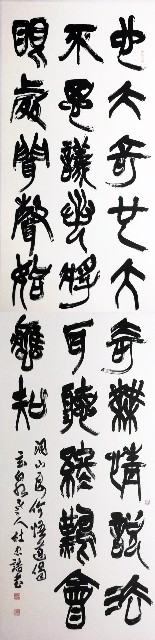 也大奇也大奇無情說法
不思議若將耳聽終難會
眼處聞聲始能知
洞山良价悟道偈
人杜忠誥書